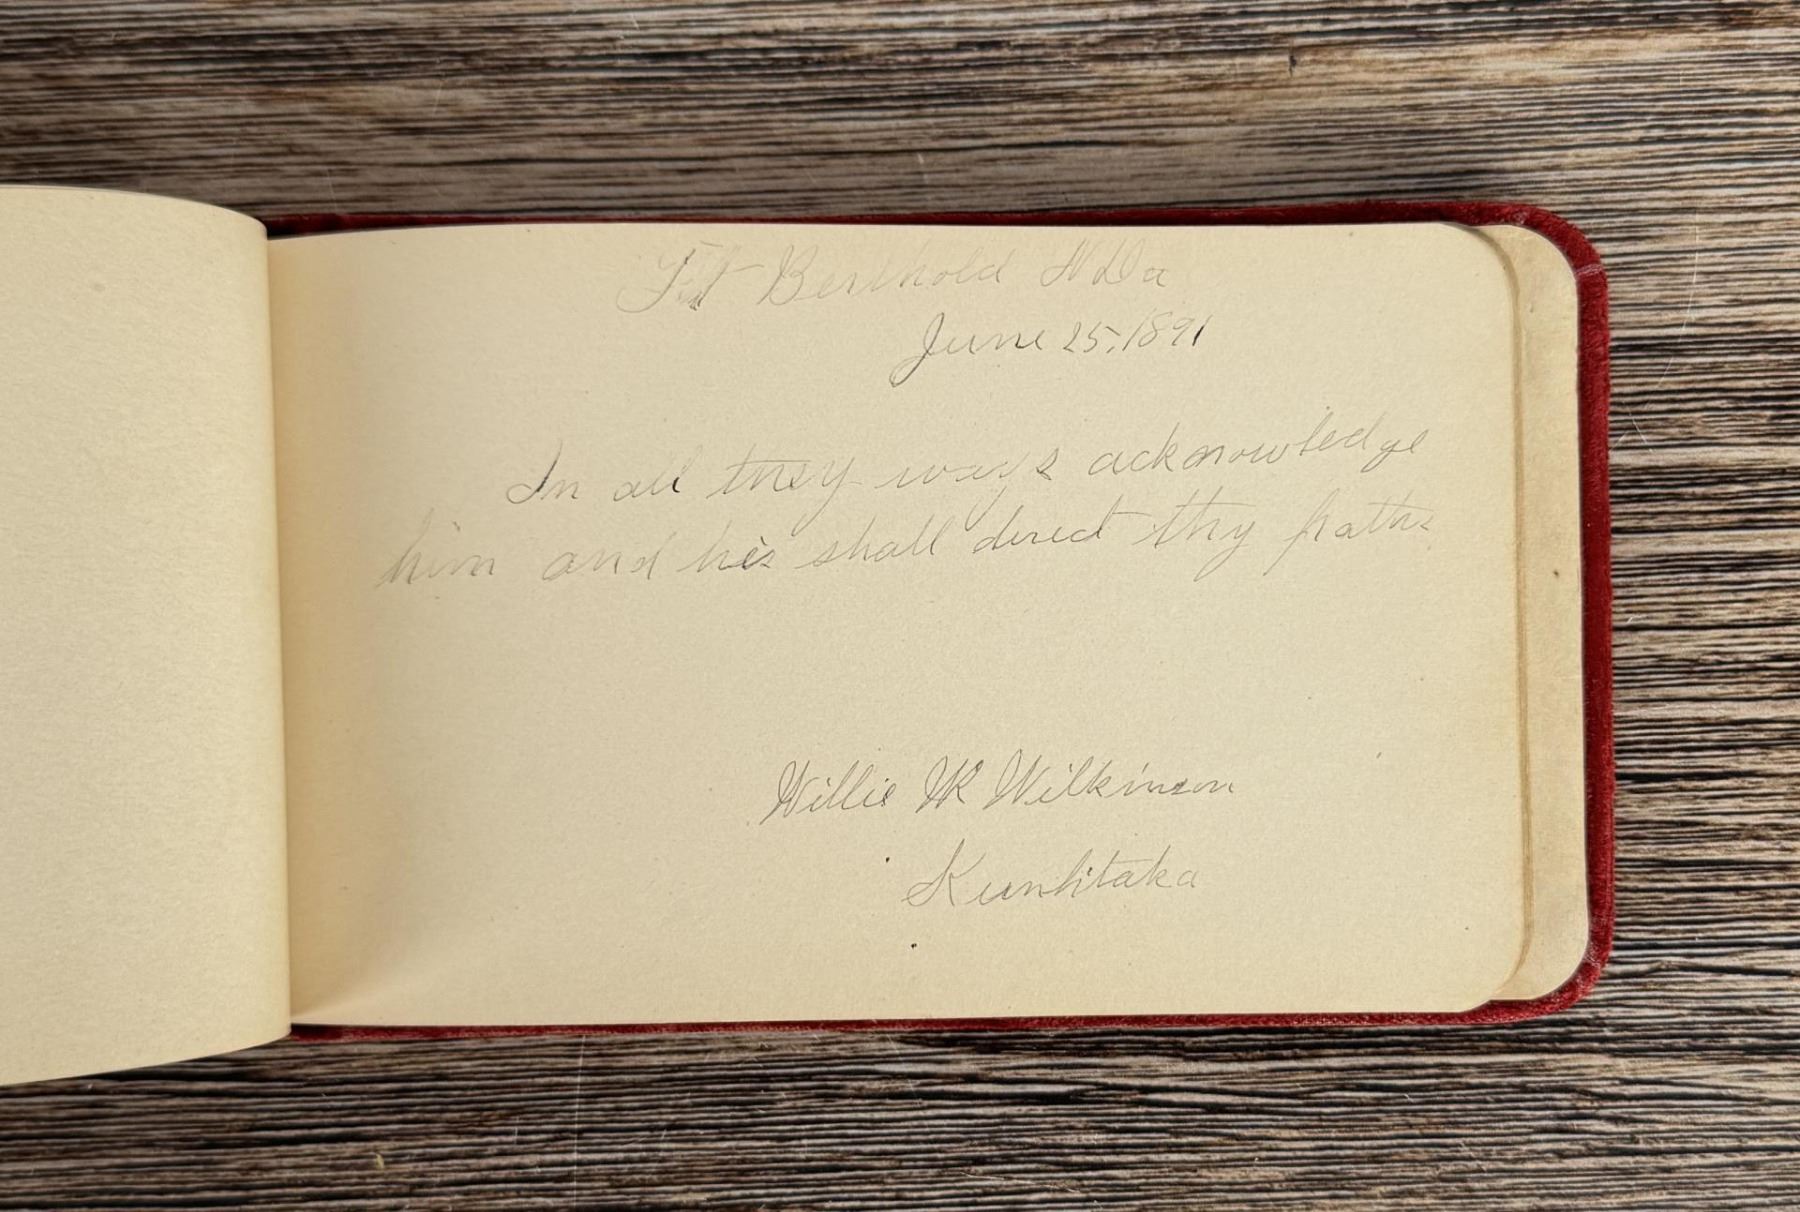 Ft Berthold N Da
June 25, 1891
In all they ways acknowledge
him and he shall direct thy paths
Willie W Wilkinson
Kunhitaka